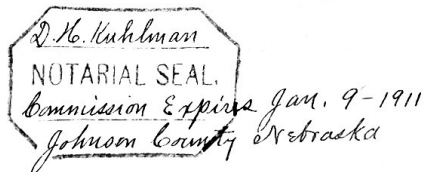 D. H. Kuhlman
NOTARIAL SEAL.
Commission Expires Jan. 9-1911
Johnson County Nebraska